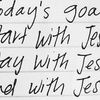 oday's goa
tart with Jes
tay with Jes
nd with Jes